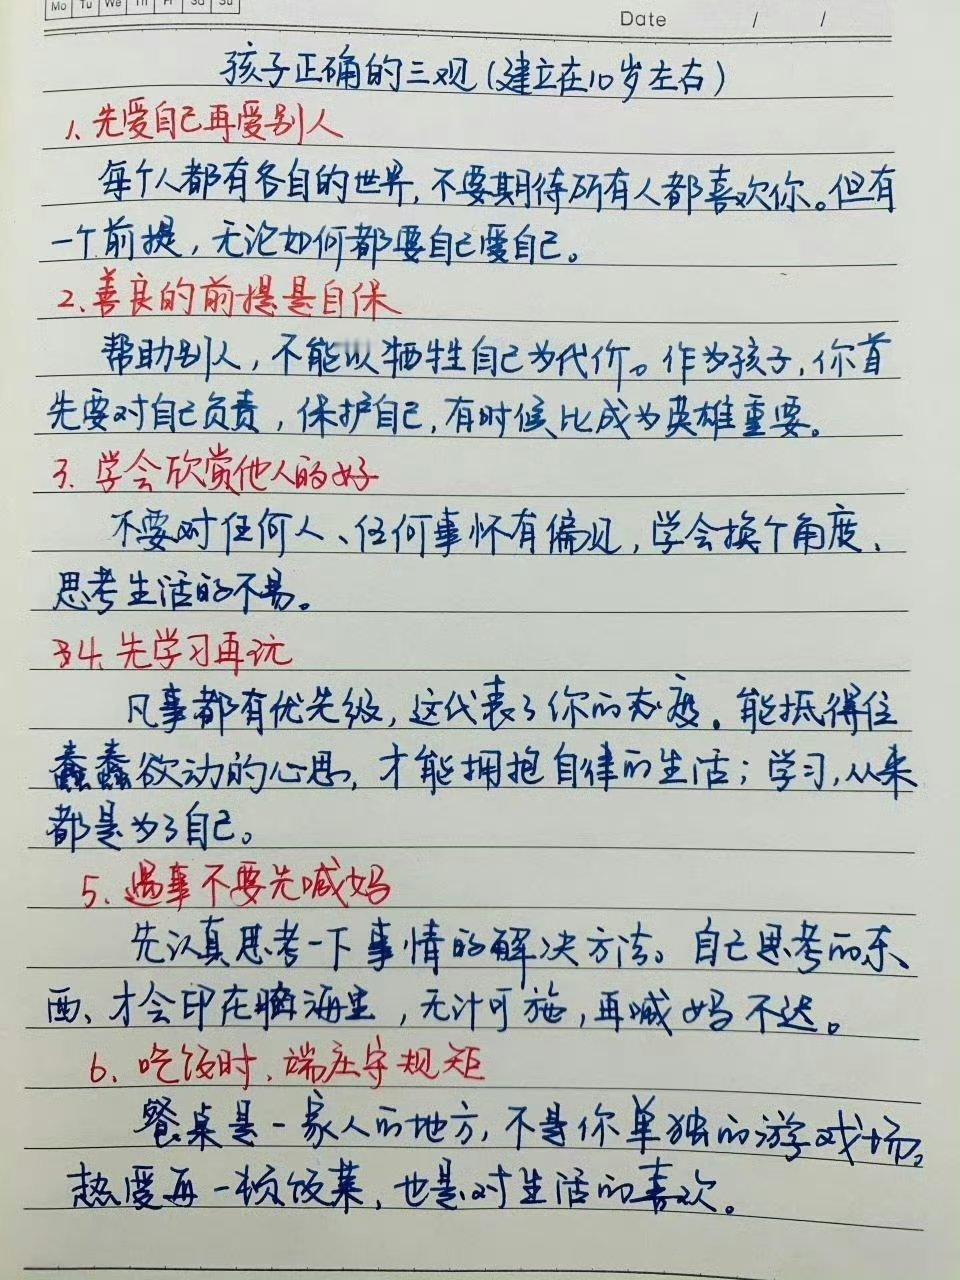 Mo Tu We Th Fr Sa Su
Date / /
孩子正确的三观(建立在10岁左右)
1、先爱自己再爱别人
每个人都有各自的世界,不要期待所有人都喜欢你。但有
一个前提,无论如何都要自己爱自己。
2、善良的前提是自保
帮助别人,不能以牺牲自己为代价。作为孩子,你首
先要对自己负责,保护自己,有时候比成为英雄重要。
3、学会欣赏他人的好
不要对任何人、任何事怀有偏见,学会换个角度、
思考生活的不易。
4、先学习再玩
凡事都有优先级,这代表了你的态度。能抵得住
蠢蠢欲动的心思,才能拥抱自律的生活;学习,从来
都是为了自己。
5、遇事不要先喊妈
先认真思考一下事情的解决方法。自己思考的东
西、才会印在脑海里,无计可施,再喊妈不迟。
6、吃饭时、端庄守规矩
餐桌是一家人的地方,不是你单独的游戏场。
热爱每一顿饭菜,也是对生活的喜欢。